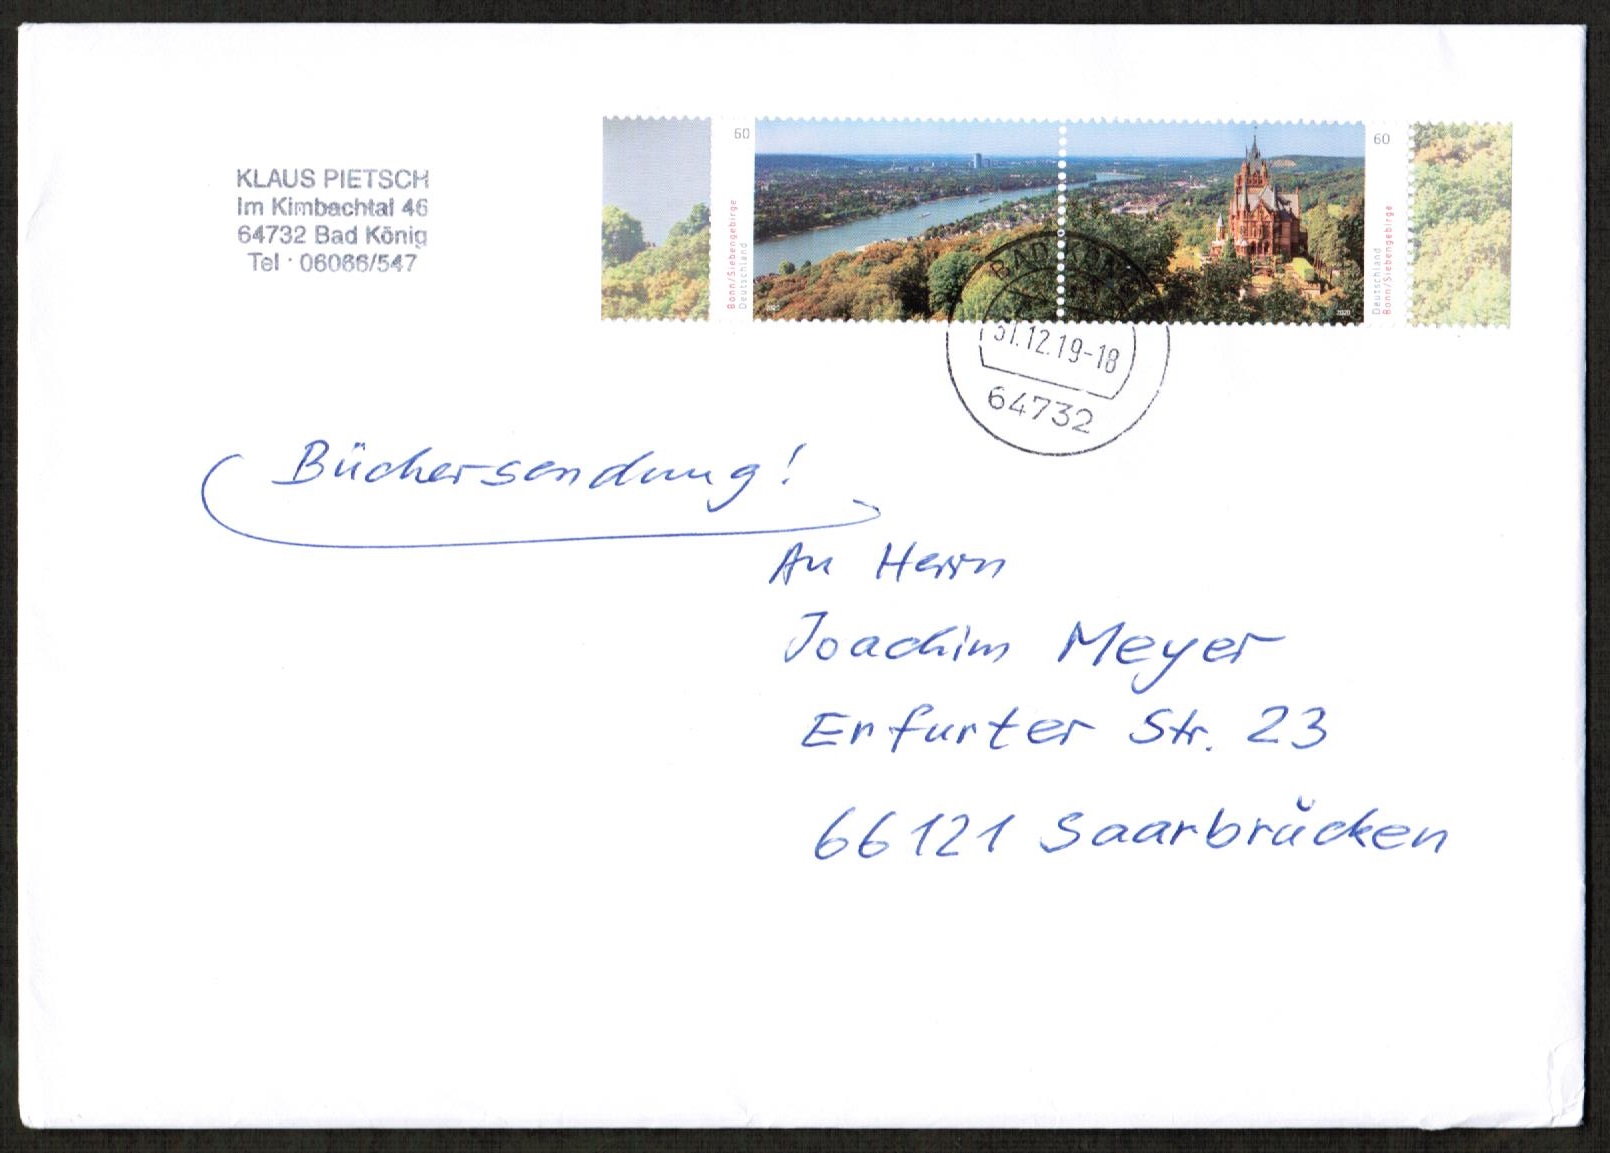 KLAUS PIETSCH
Im Kimbachtal 46
64732 Bad König
Tel · 06066/547
60
Bonn/Siebengebirge
Deutschland
60
Deutschland
Bonn/Siebengebirge
2020
31.12.19-18
64732
Büchersendung!
An Herrn
Joachim Meyer
Erfurter Str. 23
66121 Saarbrücken